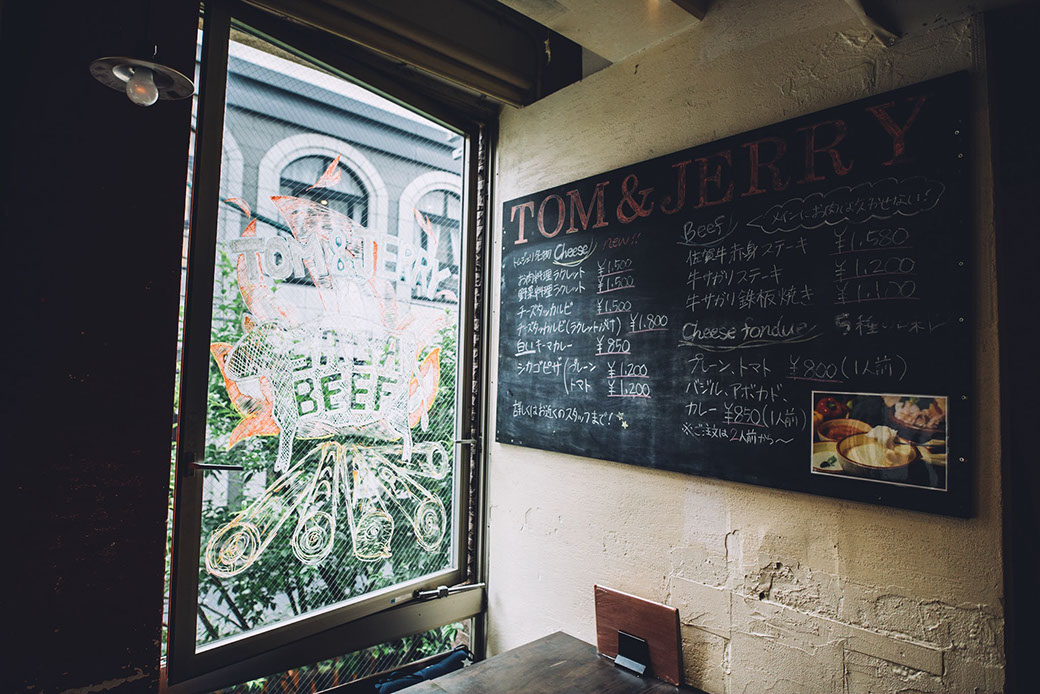 TOM & JERRY
BEEF
TOM & JERRY
Cheese new!!
お肉料理ラクレット ¥1,500
野菜料理ラクレット ¥1,500
チーズタッカルビ ¥1,500
チーズタッカルビ(ラクレットがけ) ¥1,800
白いキーマカレー ¥850
シカゴピザ (プレーン ¥1,200
トマト ¥1,200
詳しくはお近くのスタッフまで!
Beef
メインにお肉は欠かせない?
佐賀牛赤身ステーキ ¥1,580
牛サガリステーキ ¥1,200
牛サガリ鉄板焼き ¥1,100
Cheese fondue 5種
プレーン、トマト ¥800(1人前)
バジル、アボカド、
カレー ¥850(1人前)
※ご注文は2人前から~